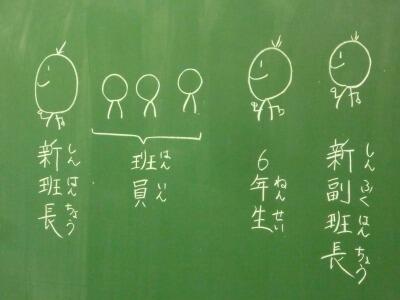 新副班長
しんふくはんちょう
6年生
ねんせい
班員
はんいん
新班長
しんはんちょう